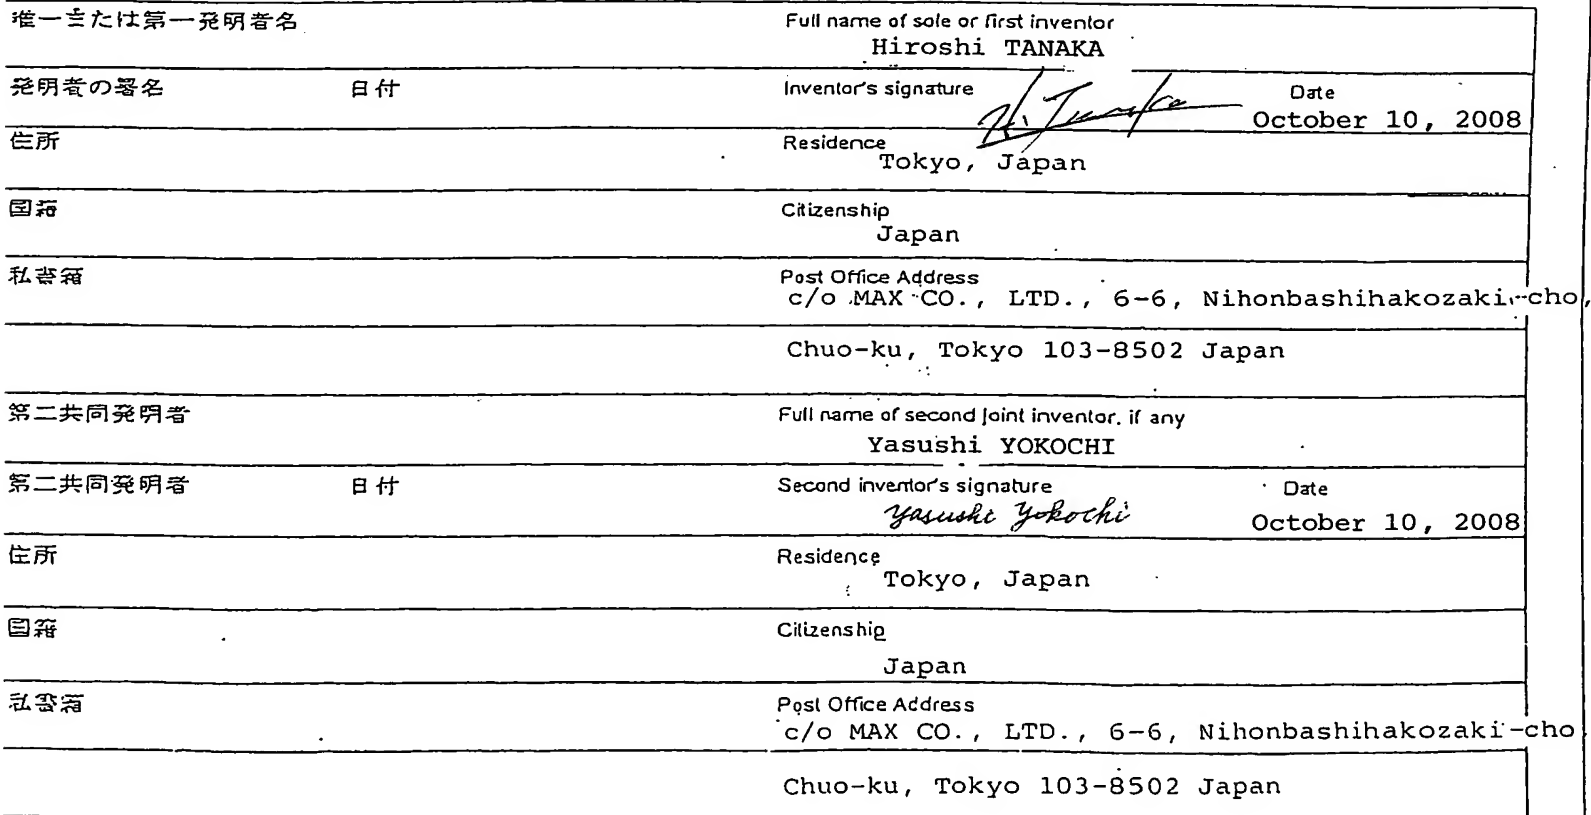 唯一または第一発明者名 Full name of sole or first inventor
Hiroshi TANAKA
発明者の署名 日付 Inventor's signature Date
H. Tanaka October 10, 2008
住所 Residence
Tokyo, Japan
国籍 Citizenship
Japan
私書箱 Post Office Address
c/o MAX CO., LTD., 6-6, Nihonbashihakozaki-cho,
Chuo-ku, Tokyo 103-8502 Japan
第二共同発明者 Full name of second joint inventor, if any
Yasushi YOKOCHI
第二共同発明者 日付 Second inventor's signature Date
Yasushi Yokochi October 10, 2008
住所 Residence
Tokyo, Japan
国籍 Citizenship
Japan
私書箱 Post Office Address
c/o MAX CO., LTD., 6-6, Nihonbashihakozaki-cho,
Chuo-ku, Tokyo 103-8502 Japan